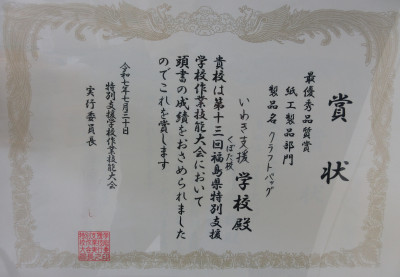 賞状
最優秀品質賞
紙工製品部門
製品名 クラフトバッグ
いわき支援学校殿
くぼた校
貴校は第十三回福島県特別支援
学校作業技能大会において
頭書の成績をおさめられました
のでこれを賞します
令和七年七月三十日
特別支援学校作業技能大会
実行委員長